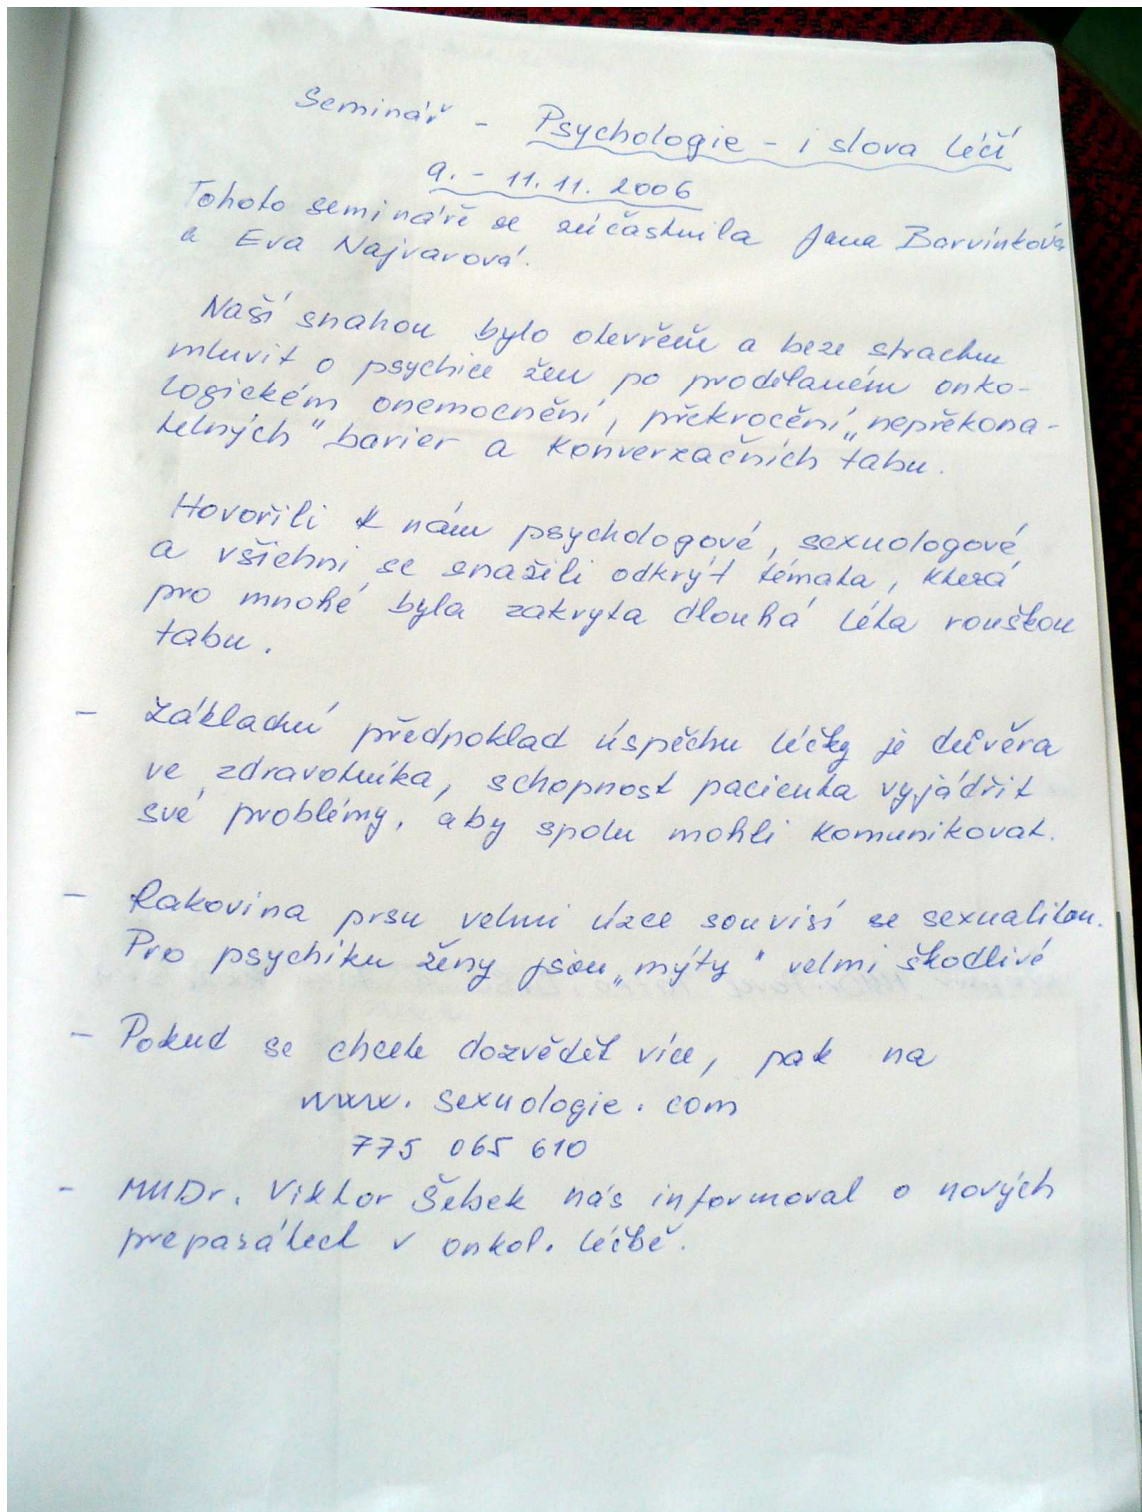 Seminář - Psychologie - i slova léčí
9. - 11. 11. 2006
Tohoto semináře se zúčastnila Jana Barvínková
a Eva Najvarová.
Naší snahou bylo otevřeně a beze strachu
mluvit o psychice žen po prodělaném onko-
logickém onemocnění, překročení „nepřekona-
telných" barier a konverzačních tabu.
Hovořili k nám psychologové, sexuologové
a všichni se snažili odkrýt témata, která
pro mnohé byla zakryta dlouhá léta rouškou
tabu.
- Základní předpoklad úspěchu léčby je důvěra
ve zdravotníka, schopnost pacienta vyjádřit
své problémy, aby spolu mohli komunikovat.
- Rakovina prsu velmi úzce souvisí se sexualitou.
Pro psychiku ženy jsou „mýty" velmi škodlivé
- Pokud se chcete dozvědět více, pak na
www.sexuologie.com
775 065 610
- MUDr. Viktor Šebek nás informoval o nových
preparátech v onkol. léčbě.